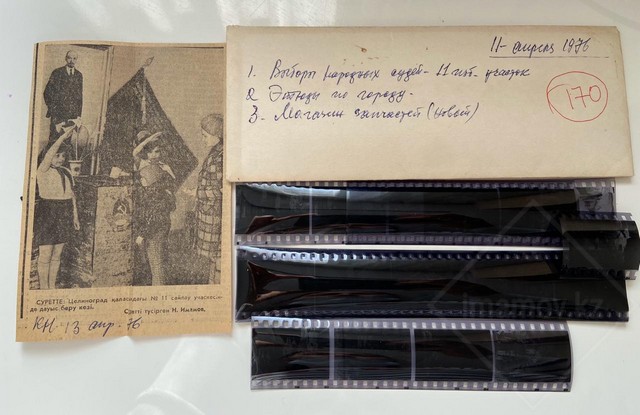 11 - апреля 1976
1. Выборы народных судей - 11 изб. участок
2. Этюды по городу.
3. Магазин запчастей (новой)
170
СУРЕТТЕ: Целиноград қаласындағы № 11 сайлау учаскесін-
де дауыс беру кезі.
Суретті түсірген Н.
КН. 13 апр. 76